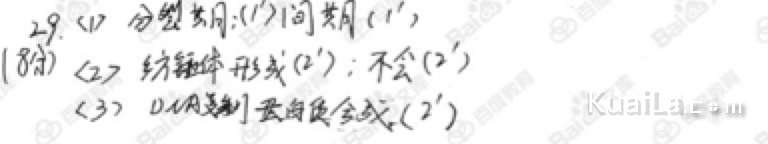 29. <1> 分裂期;(1') 间期(1')
(8分) <2> 纺锤体形成(2'); 不会(2')
<3> DNA复制 蛋白质合成.(2')
KuaiLa c o m